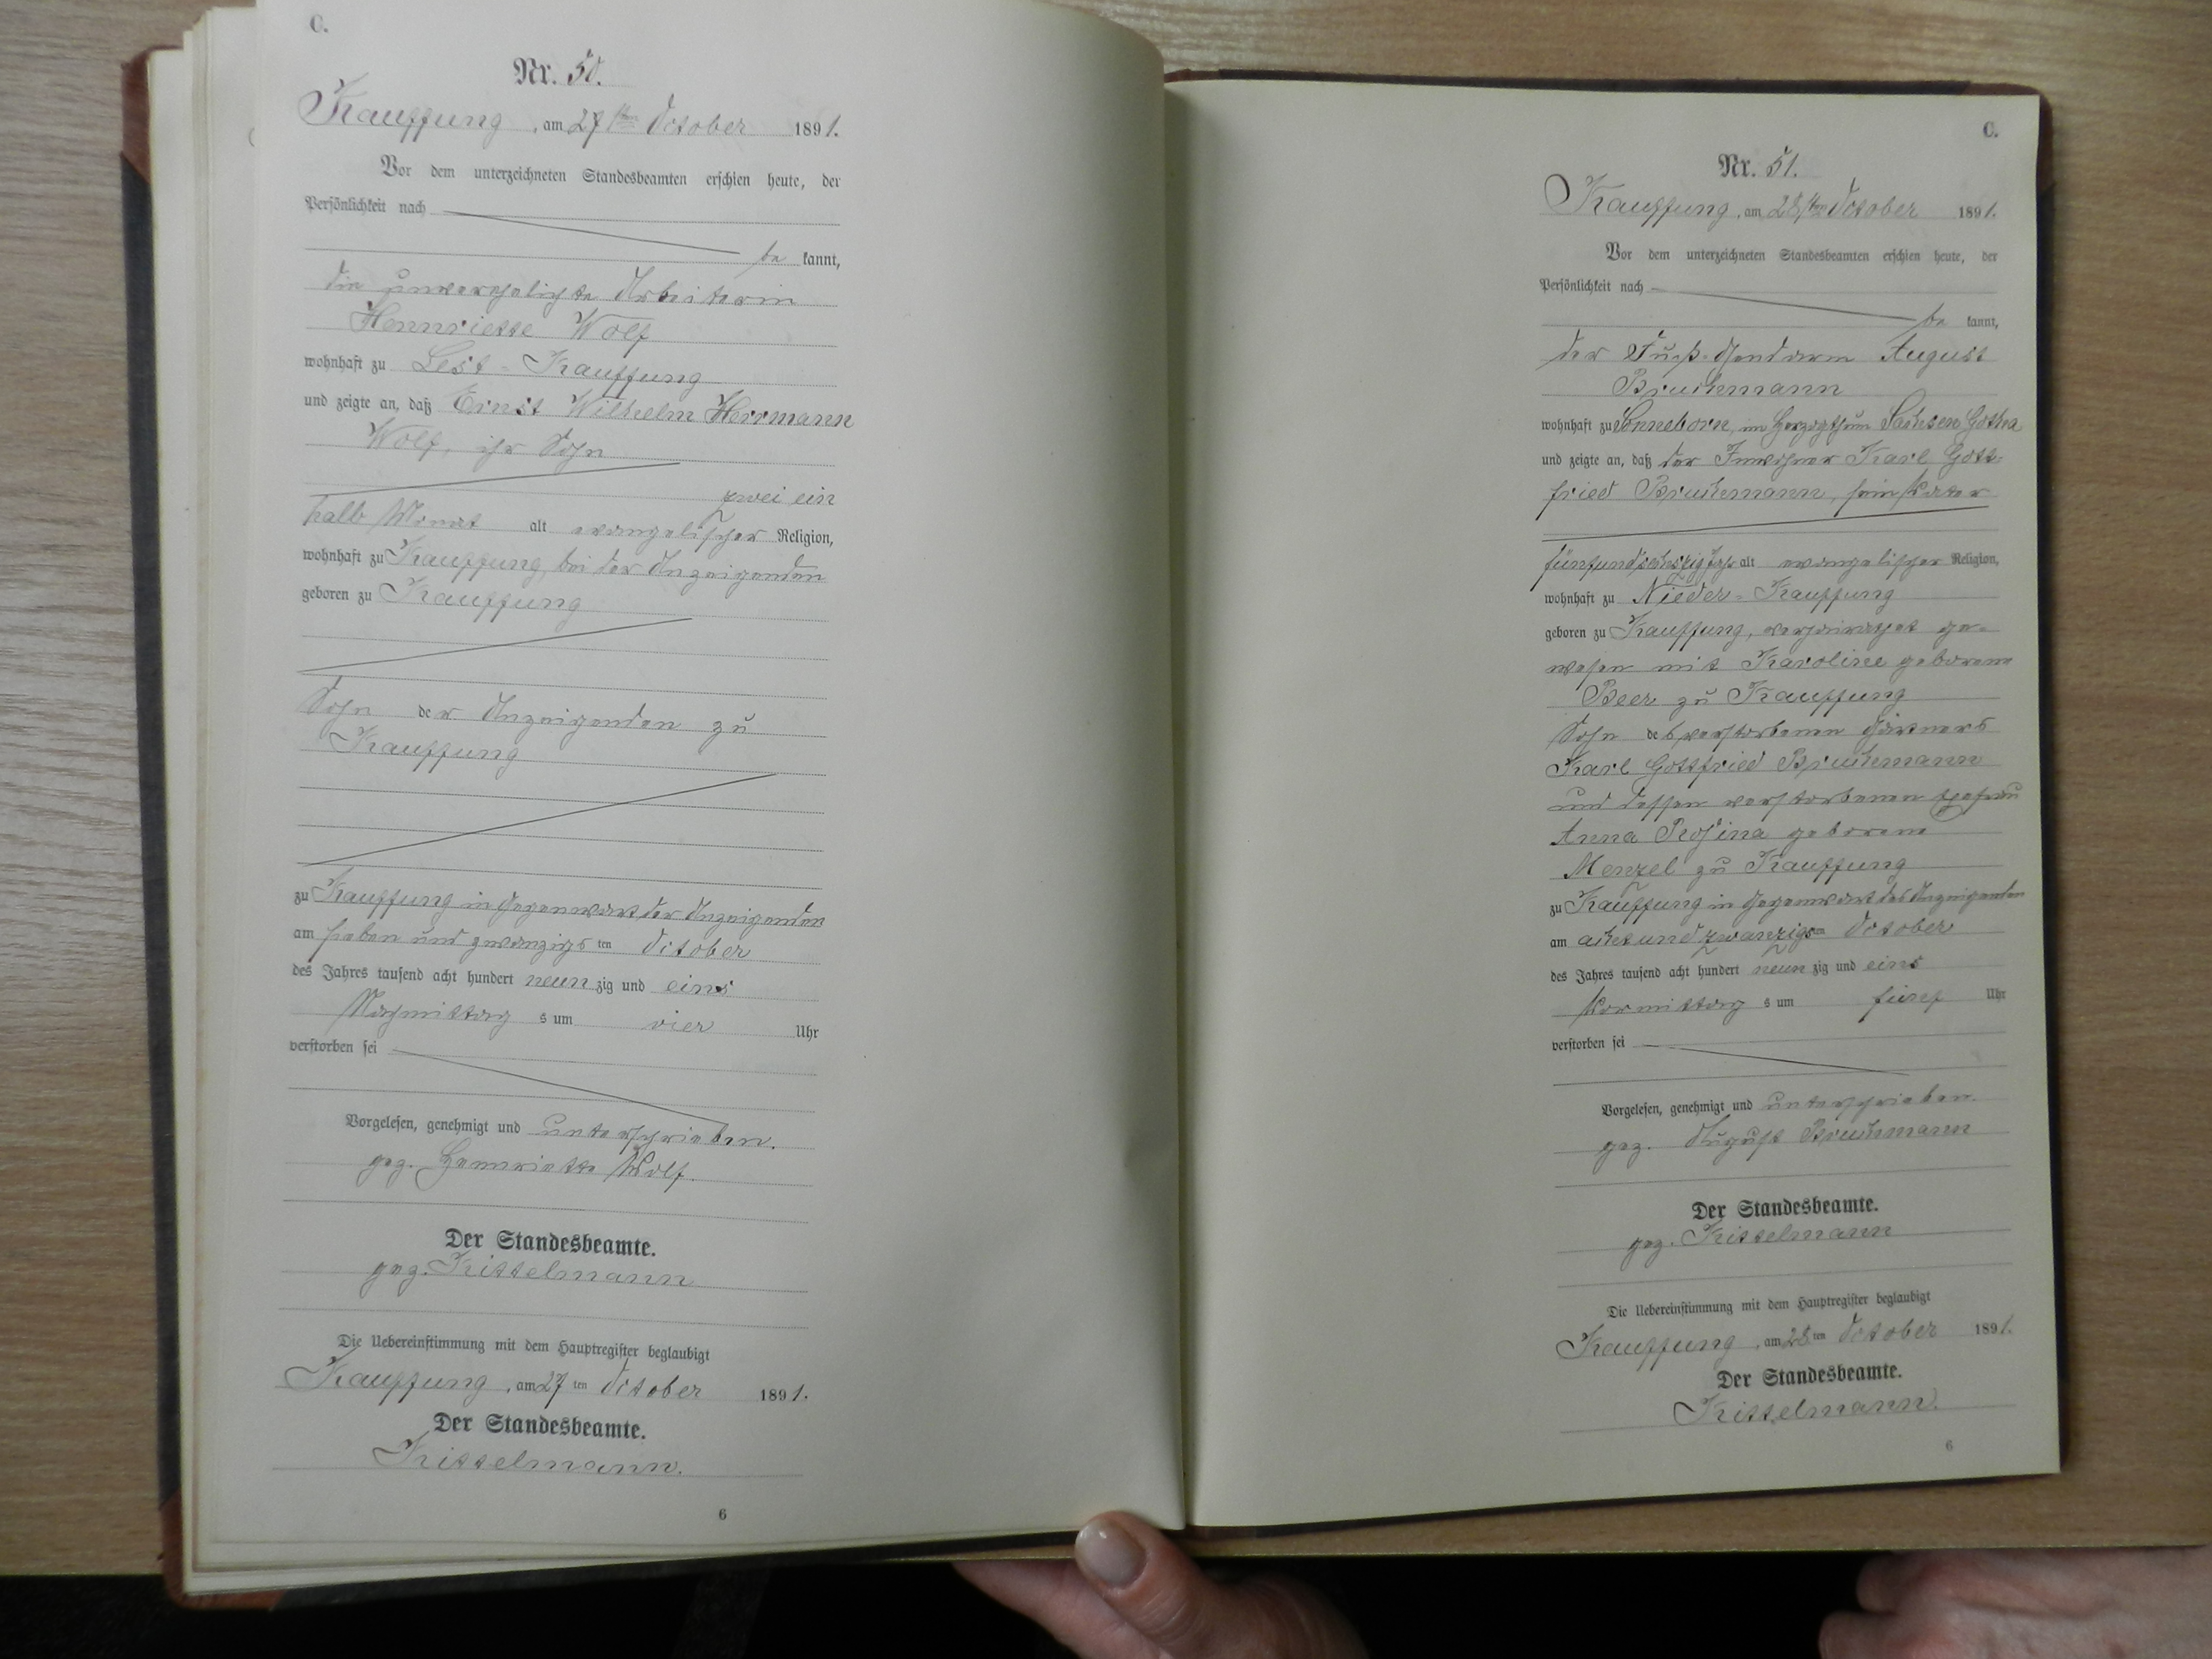 C.
Nr. 50.
Kauffung, am 27ten October 1891.
Vor dem unterzeichneten Standesbeamten erschien heute, der
Persönlichkeit nach
be kannt,
die unverehelichte Arbeiterin
Hennriette Wolf
wohnhaft zu Lest-Kauffung
und zeigte an, daß Ernst Wilhelm Herrmann
Wolf, ihr Sohn
zwei ein
halb Monat alt evangelischer Religion,
wohnhaft zu Kauffung, bei der Anzeigenden
geboren zu Kauffung
Sohn der Anzeigenden zu
Kauffung
zu Kauffung in Gegenwart der Anzeigenden
am sieben und zwanzigsten October
des Jahres tausend acht hundert neunzig und eins
Nachmittags um vier Uhr
verstorben sei
Vorgelesen, genehmigt und unterschrieben.
gez. Hennriette Wolf.
Der Standesbeamte.
gez. Kittelmann
Die Uebereinstimmung mit dem Hauptregister beglaubigt
Kauffung, am 27ten October 1891.
Der Standesbeamte.
Kittelmann.
6
C.
Nr. 51.
Kauffung, am 28ten October 1891.
Vor dem unterzeichneten Standesbeamten erschien heute, der
Persönlichkeit nach
be kannt,
der Fuß-Gendarm August
Bruchmann
wohnhaft zu Sonneborn, im Herzogthum Sachsen Gotha
und zeigte an, daß der Inwohner Karl Gott-
fried Bruchmann, sein Vater
fünfundsechszig Jahr alt evangelischer Religion,
wohnhaft zu Nieder-Kauffung
geboren zu Kauffung, verheirathet ge-
wesen mit Karoline geborene
Beer zu Kauffung
Sohn des verstorbenen Gärtners
Karl Gottfried Bruchmann
und dessen verstorbenen Ehefrau
Anna Rosina geborene
Menzel zu Kauffung
zu Kauffung in Gegenwart des Anzeigenden
am acht und zwanzigsten October
des Jahres tausend acht hundert neunzig und eins
Vormittags um fünf Uhr
verstorben sei
Vorgelesen, genehmigt und unterschrieben.
gez. August Bruchmann
Der Standesbeamte.
gez. Kittelmann
Die Uebereinstimmung mit dem Hauptregister beglaubigt
Kauffung, am 28ten October 1891.
Der Standesbeamte.
Kittelmann.
6